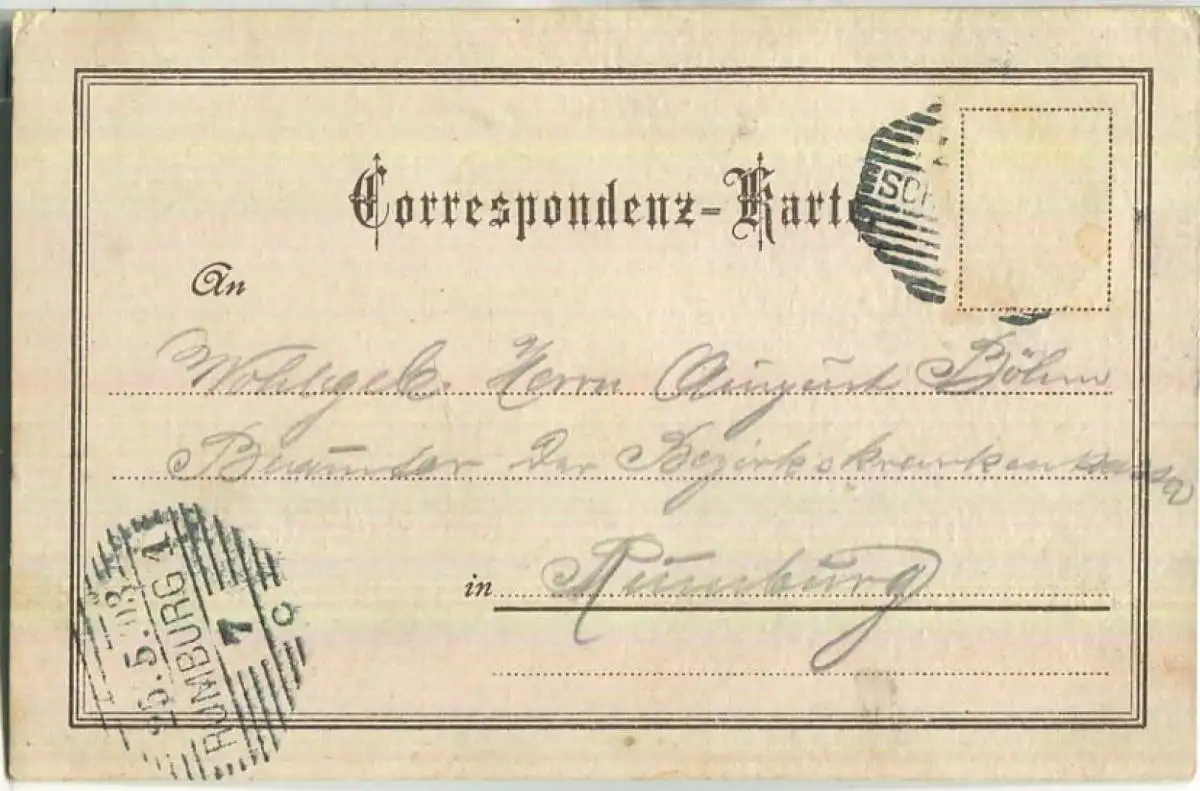 Correspondenz-Karte
SCH
An
Wohlgeb. Herrn August Böhm
Beamter der Bezirkskrankenkassa
in Rumburg
RUMBURG 1
25.5.
7
C